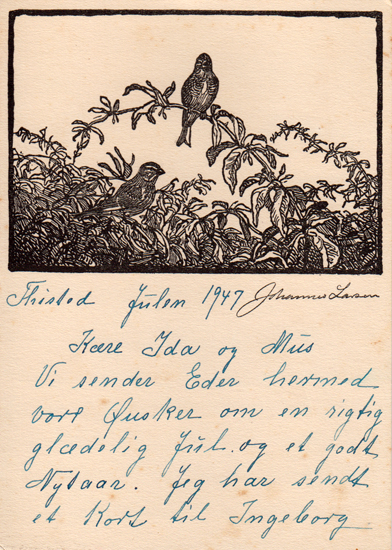 Thisted Julen 1947 Johannes Larsen
Kære Ida og Mus
Vi sender Eder hermed
vore Ønsker om en rigtig
glædelig Jul. og et godt
Nytaar. Jeg har sendt
et Kort til Ingeborg